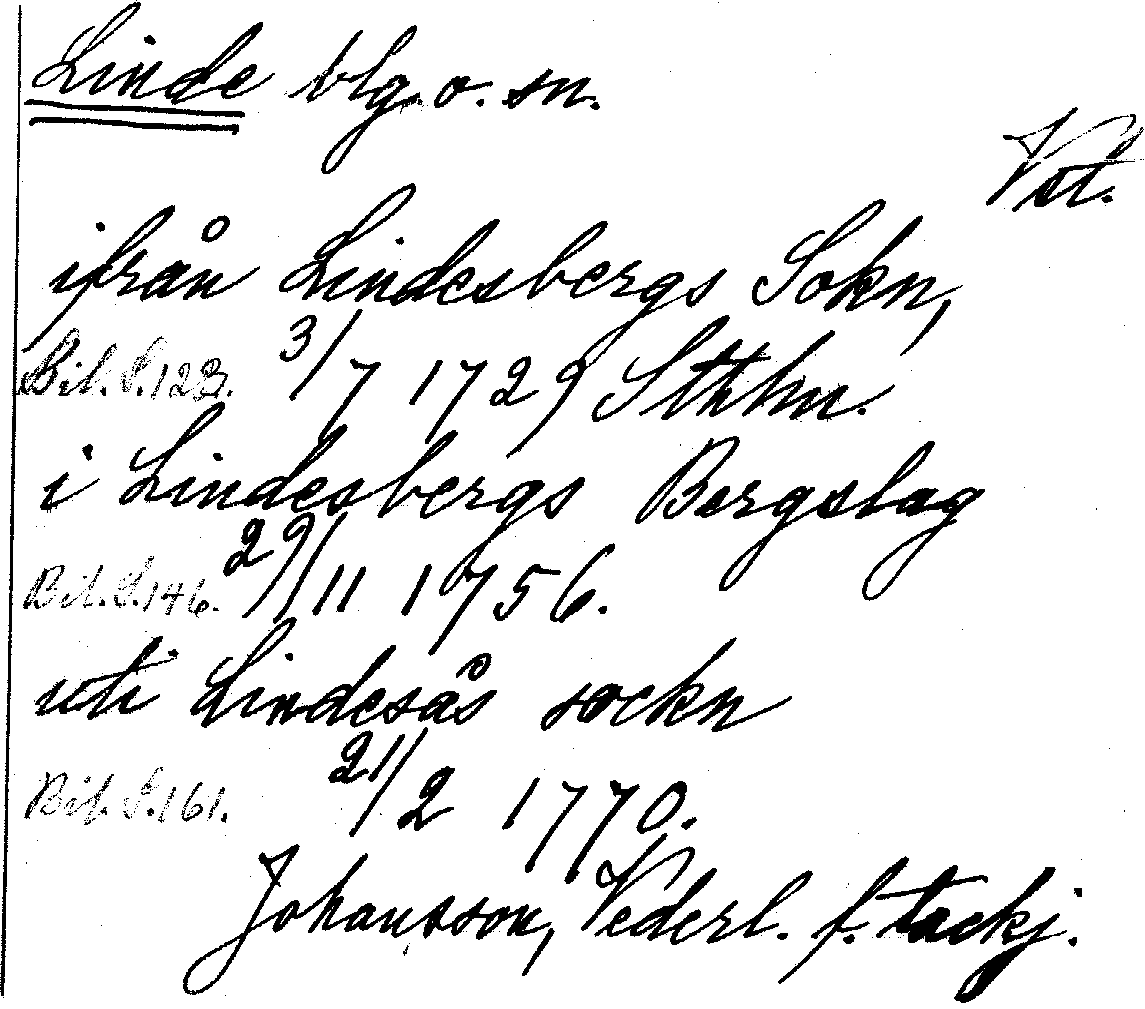 Linde blg. o. sn.
Vst.
ifrån Lindesbergs Sokn,
Bil. S. 123. 3/7 1729 Sthlm.
i Lindesbergs Bergslag
Bil. S. 146. 29/11 1756.
uti Lindesås sockn
Bil. S. 161. 21/2 1770.
Johansson, Vederl. f. tackj.